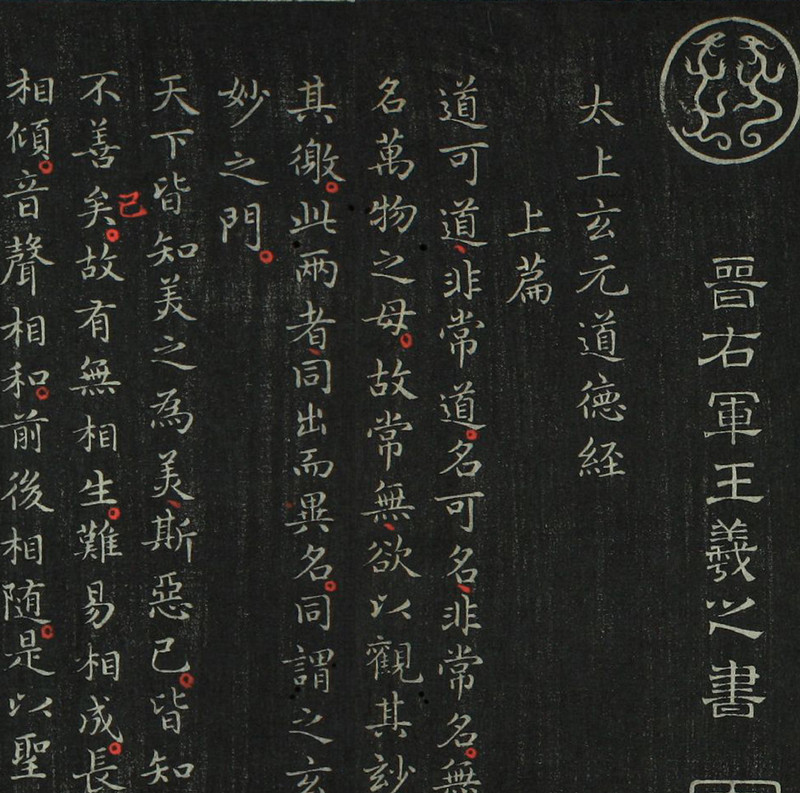 晉右軍王羲之書
太上玄元道德経
上篇
道可道、非常道。名可名、非常名。無
名萬物之母。故常無、欲以觀其玅
其徼。此两者、同出而異名。同謂之玄
妙之門。
天下皆知美之為美、斯惡已。皆知
不善矣。故有無相生。難易相成。長
已
相傾。音聲相和。前後相随。是以聖